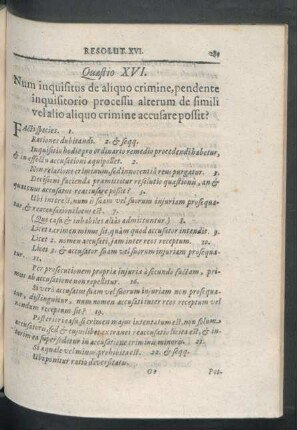 RESOLUT. XVI. 289
Quæstio XVI.
Num inquisitus de aliquo crimine, pendente
inquisitorio processu alterum de simili
vel alio aliquo crimine accusare possit?
FActi species. 1.
Rationes dubitandi. 2. & seqq.
Inquisitio hodie pro ordinario remedio procedendi habetur,
& in effectu accusationi æquipollet. 2.
Non relatione criminum, sed innocentia reus purgatur. 3.
Decisioni facienda præmittitur resolutio quæstionis, an &
quatenus accusatus reaccusare possit? 5.
Ubi interest, num is suam vel suorum injuriam prosequa-
tur, & reaccusationi locus est. 7.
(Quo casu & inhabiles alias admittuntur.) 8.
Licet crimen minus sit, quàm quod accusator intendit. 9.
Licet nomen accusati, jam inter reos receptum. 10.
Licet & accusator suam vel suorum injuriam prosequa-
tur. 11.
Per prosecutionem propria injuria à secundo factam, pri-
mus ab accusatione non repellitur.
Si verò accusatus suam vel suorum injuriam non prosequa-
tur, distinguitur, num nomen accusati inter reos receptum vel
nondum sit? 19.
Posteriori casu si crimen majus intentatum est, non solum
accusatore, sed & cujuslibet extranei reaccusatio licita est, &
crimen supersedetur in accusatione criminis minoris.
Si æquale vel minus, prohibita est. 22. & seqq.
Ubi ponitur ratio diversitatis.
Oo Pos-